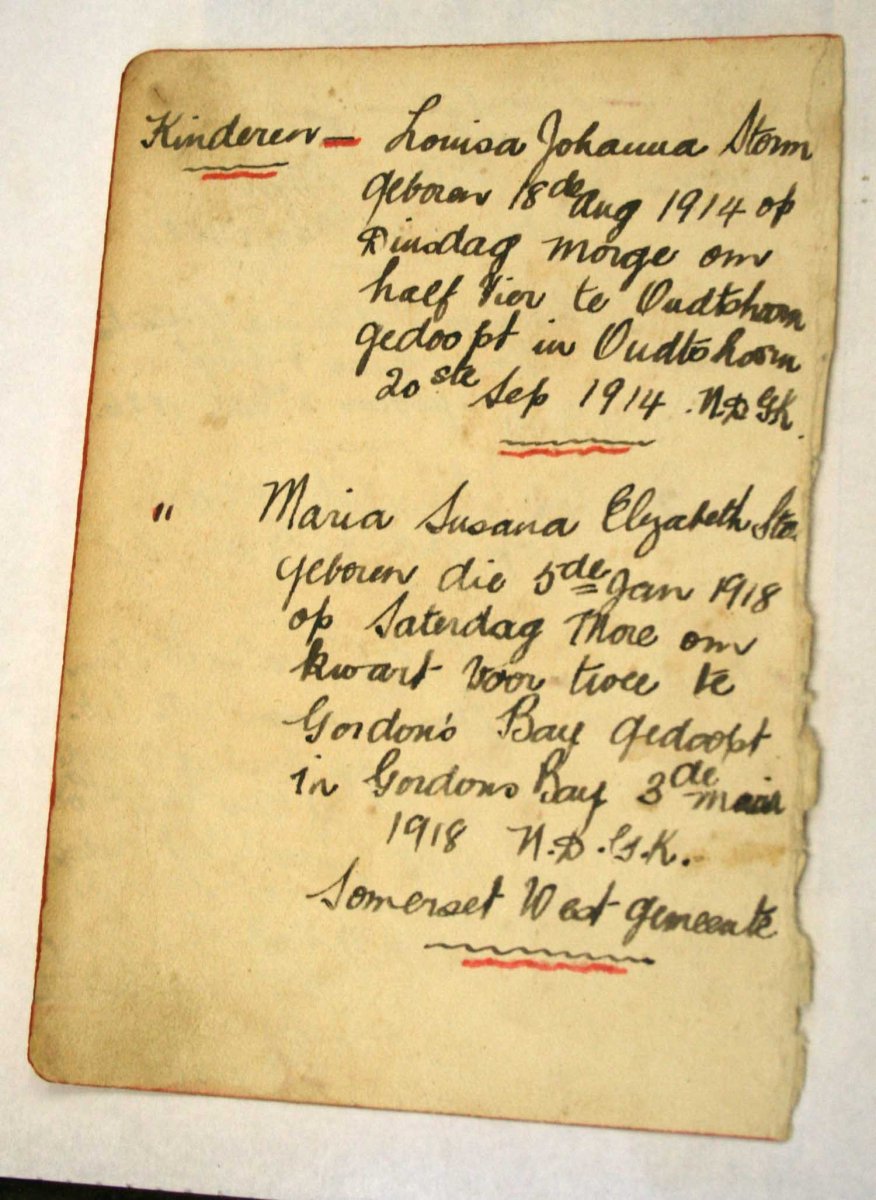 Kinderen — Louisa Johanna Storm
geboren 18de Aug 1914 op
Dinsdag morge om
half vier te Oudtshoorn
gedoopt in Oudtshoorn
20ste Sep 1914. N.D.G.K.
" Maria Susana Elizabeth Sto
geboren die 5de Jan 1918
op Saterdag More om
kwart voor twee te
Gordon's Bay gedoopt
in Gordons Bay 3de
1918 N.D.G.K.
Somerset West gemeente